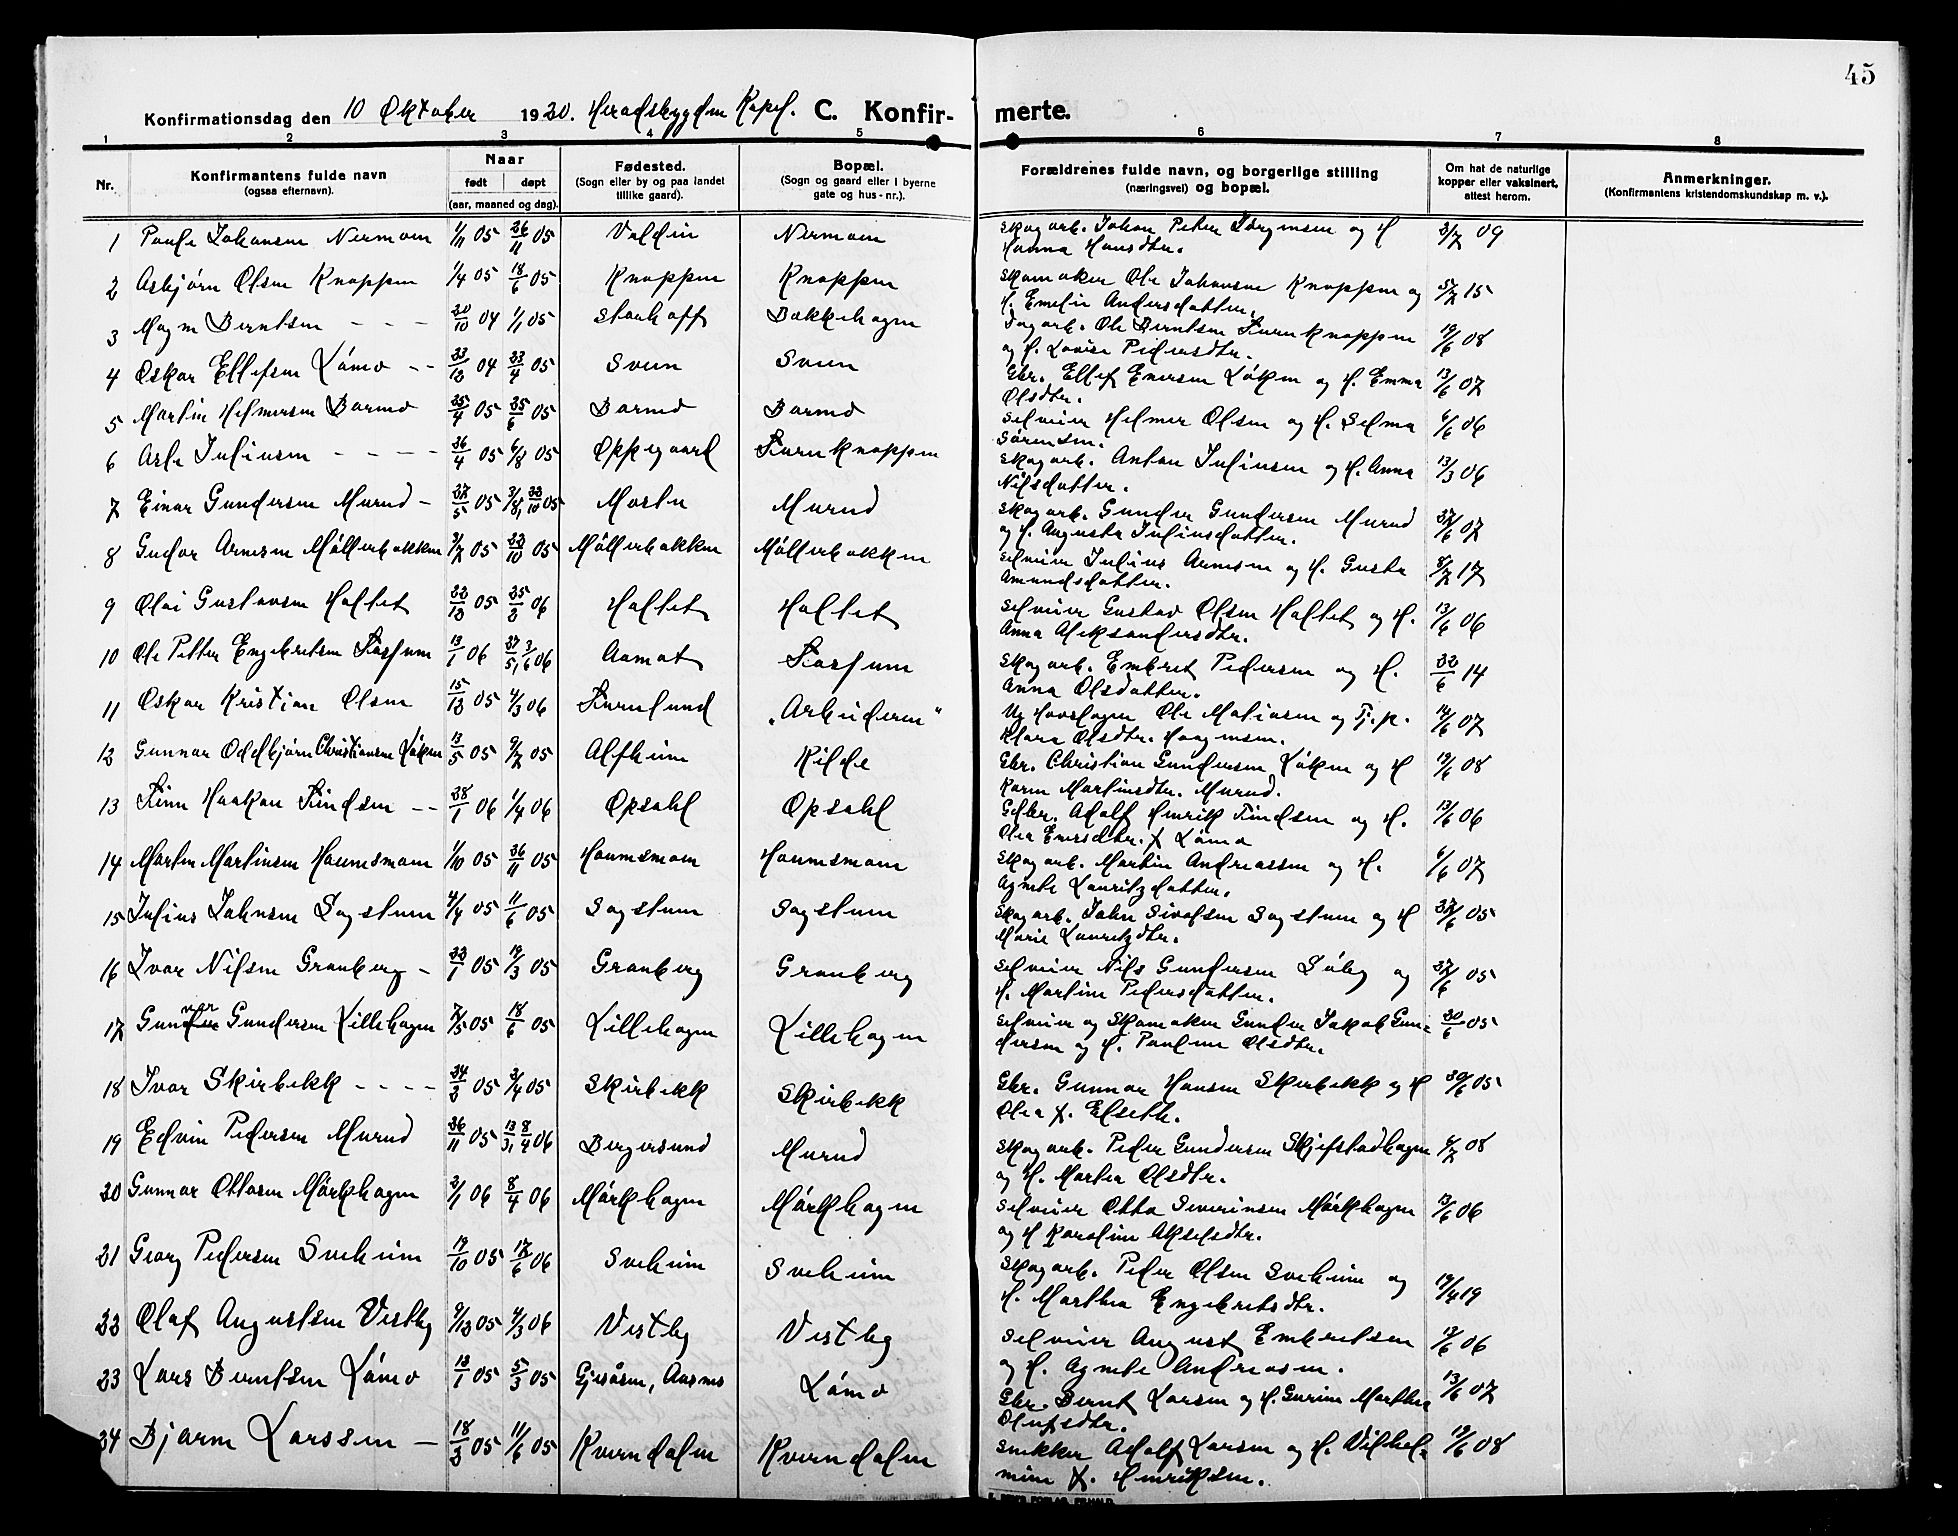 45
Konfirmationsdag den 10 Oktober 1920. Heradsbygden Kapel. C. Konfirmerte.
1 2 3 4 5 6 7 8
Nr.
Konfirmantens fulde navn
(ogsaa efternavn).
Naar
født døpt
(aar, maaned og dag).
Fødested.
(Sogn eller by og paa landet
tillike gaard).
Bopæl.
(Sogn og gaard eller i byerne
gate og hus-nr.).
Forældrenes fulde navn, og borgerlige stilling
(næringsvei) og bopæl.
Om hat de naturlige
kopper eller vaksinert,
attest herom.
Anmerkninger.
(Konfirmantens kristendomskundskap m. v.).
1 Paule Johansen Nermoen 1/11 05 26/11 05 Voldin Nermoen Skogarb. Johan Peter Jørgensen og H 2/7 09
Hanna Hansdtr.
2 Asbjørn Olsen Knappen 1/4 05 18/6 05 Knappen Knappen Skomaker Ole Johansen Knappen og 15
H. Emelie Andersdatter.
3 Magne Berntsen - - - 20/10 04 1/1 05 Bakkehagen Sagarb. Ole Berntsen Furuknappen 19/6 08
og H. Lovise Pedersdtr.
4 Oskar Ellefsen Lømo - - 22/12 04 23/4 05 Sveen Sveen Gbr. Ellef Enersen Løken og H. Emma 13/6 07
Olsdtr.
5 Martin Helmersen Barmo 25/4 05 25/6 05 Barmo Barmo Selveier Helmer Olsen og H. Selma 6/6 06
Sørensen.
6 Asle Juliusen - - - - 26/4 05 6/8 05 Oppegaard Furuknappen Skogarb. Anton Juliusen og H. Anna 13/3 06
Nilsdatter.
7 Einar Gundersen Murud - 27/5 05 3/8, 22/10 05 Moslu Murud Skogarb. Gunder Gundersen Murud 27/6 07
og H. Augusta Juliusdatter.
8 Gudor Arnesen Møllerbakken 2/7 05 22/10 05 Møllerbakken Møllerbakken Selveier Julius Arnesen og H. Gusta 17
Amundsdatter.
9 Olai Gustavsen Haltet 22/12 05 25/2 06 Haltet Haltet Selveier Gustav Olsen Haltet og H. 13/6 06
Anna Aleksandersdtr.
10 Ole Petter Engebretsen Fosfum 13/1 06 27/5, 3/6 06 Aamot Fosfum Skogarb. Embret Pedersen og H. 22/6 14
Anna Olsdatter.
11 Oskar Kristian Olsen 15/12 05 4/3 06 Furulund „Arbuderen“ Ug Hovslager Ole Matiasen og Tj.p. 14/6 07
Klara Olsdtr. Haagensen.
12 Gunnar Oddbjørn Christiansen Løken 13/5 05 9/7 05 Alfheim Kilde Gbr. Christian Gundersen Løken og H 19/6 08
Karen Martinsdtr. Murud.
13 Finn Haakon Findsen - - 28/1 06 1/4 06 Opsahl Opsahl Gdbr. Adolf Henrik Findsen og H. 13/6 06
Olea Enersdtr. f. Lømo
14 Marten Martinsen Haunsmoen 1/10 05 26/11 05 Haunsmoen Haunsmoen Skogarb. Martin Andreassen og H. 6/6 07
Agnete Lauritzdatter.
15 Julius Johnsen Sagstuen 4/4 05 11/6 05 Sagstuen Sagstuen Skogarb. John Sivalsen Sagstuen og H 27/6 05
Marie Lauritzdtr.
16 Ivar Nilsen Granberg - 22/1 05 19/3 05 Granberg Granberg Selveier Nils Gundersen Søby og 27/6 05
H. Martine Pedersdatter.
17 Gunvor Gundersen Lillehagen 7/5 05 18/6 05 Lillehagen Lillehagen Selveier og Skomaker Gunder Jakob Gun- 20/6 05
dersen og H. Pauline Olsdtr.
18 Ivar Skirbekk - - - - 24/2 05 2/4 05 Skirbekk Skirbekk Gbr. Gunnar Hansen Skirbekk og H 20/6 05
Olea f. Elseth.
19 Edvin Pedersen Murud 26/11 05 13/3, 8/4 06 Bergersund Murud Skogarb. Peder Gundersen Skjefstadhagen 6/7 08
og H. Martea Olsdtr.
20 Gunnar Ottosen Mørkhagen 2/1 06 8/4 06 Mørkhagen Mørkhagen Selveier Otto Severinsen Mørkhagen 13/6 06
og H Karoline Akselsdtr.
21 Georg Pedersen Sveheim 19/10 05 17/6 06 Sveheim Sveheim Skogarb. Peder Olsen Sveheim og 19/4 19
H. Marthea Engebretsdtr.
22 Olaf Augustsen Vestby 9/12 05 4/3 06 Vestby Vestby Selveier August Embretsen 13/6 06
og H. Agnete Andreasen.
23 Lars Berntsen Lømo 13/1 05 5/3 05 Gjesåsen, Aasnes Lømo Gbr. Bernt Larsen og H. Gurine Marthea 13/6 07
Olufsdtr.
24 Bjarne Larssen - 18/3 05 11/6 05 Kverndalen Kverndalen Snekker Adolf Larsen og H. Vilhel- 19/6 08
mine f. Henriksen.